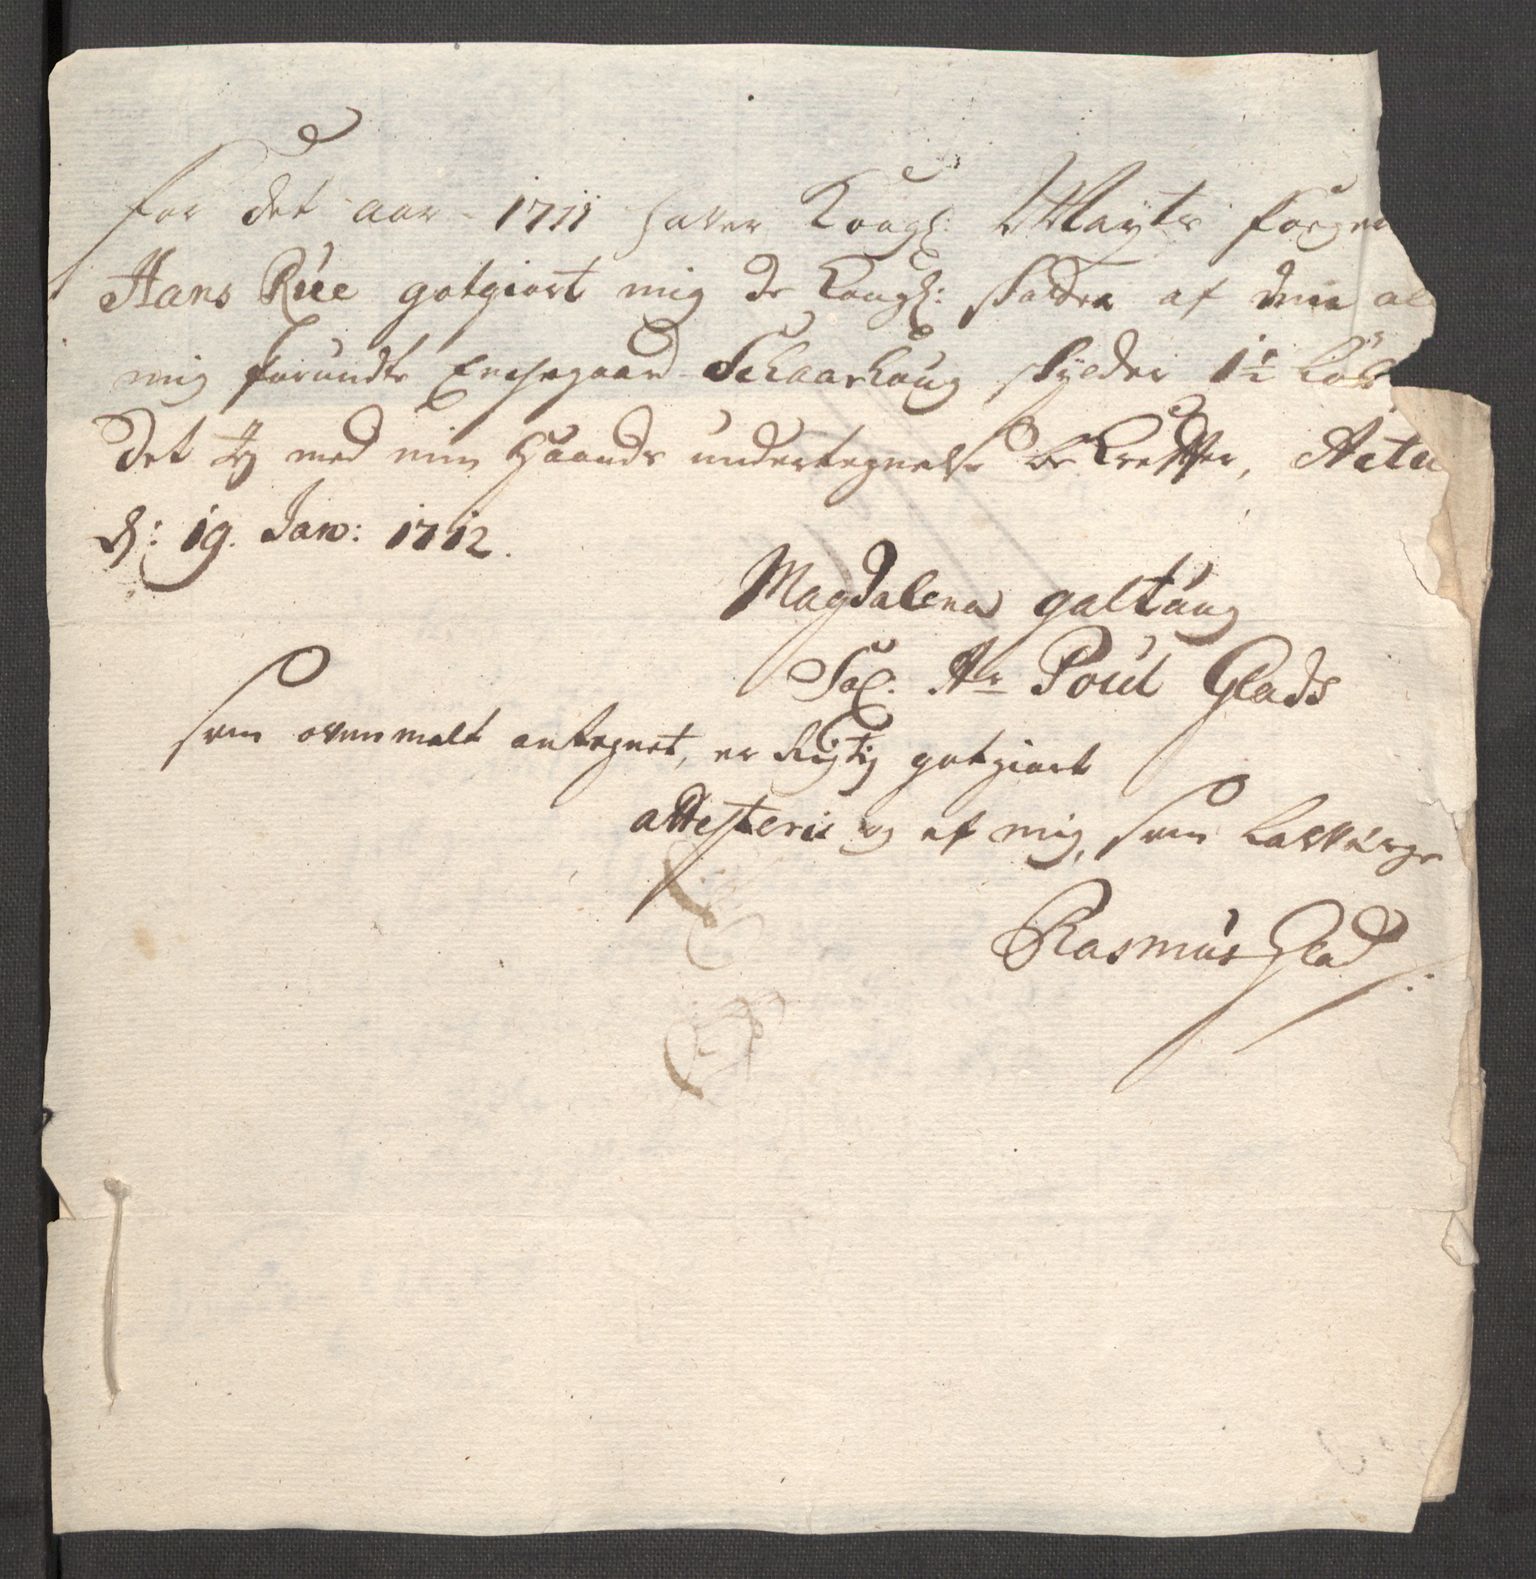 for det aar 1711 haver Kongl: Mayts foge
Hans Rúe gotgiort mig de Kongl: skatter af den al
mig forundte Enchegaard Schaarhoug skylder 1½
det Jeg med min Haands undertegnelse becrefter, Actu
d: 19. Janv: 1712.
Magdalena galtúng
Sal. Hr Poúl Glads
som ovenmelt antegnet, er Rigtig gotgiort
attesteris og af mig, som lavverge
Rasmús Glad